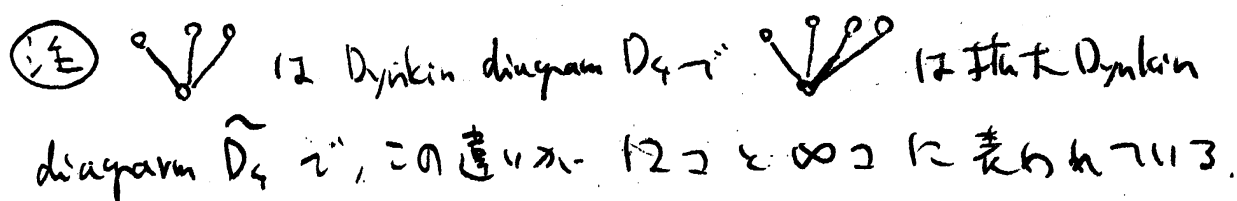 注 は Dynkin diagram D₄で は拡大 Dynkin
diagram D̃₄ で,この違いが 12コ と ∞コ に表われている.